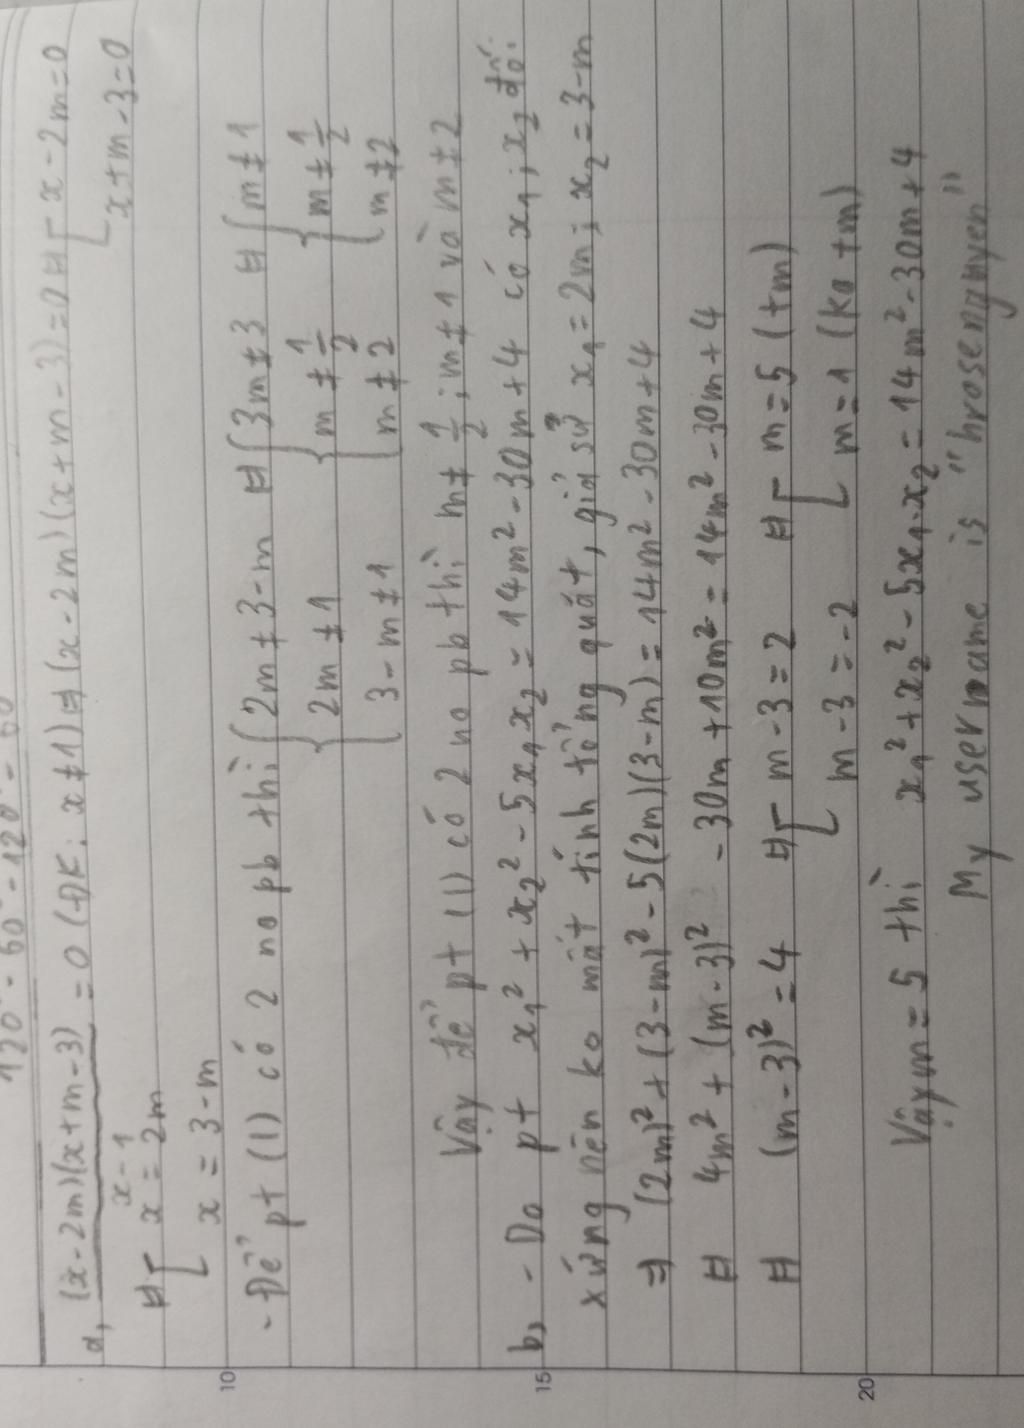 120° - 60° - 120° - 60
a, (x-2m)(x+m-3)/(x-1) = 0 (ĐK: x ≠ 1) ⇒ (x-2m)(x+m-3)=0 ⇔ [ x-2m=0
x+m-3=0
⇔ [ x = 2m
x = 3-m
- Để pt (1) có 2 no pb thì { 2m ≠ 3-m ⇔ { 3m ≠ 3 ⇔ { m ≠ 1
2m ≠ 1 m ≠ 1/2 m ≠ 1/2
3-m ≠ 1 m ≠ 2 m ≠ 2
Vậy để pt (1) có 2 no pb thì m ≠ 1/2 ; m ≠ 1 và m ≠ 2
b, - Do pt x₁² + x₂² - 5x₁x₂ = 14m² - 30m + 4 có x₁; x₂ đối
xứng nên ko mất tính tổng quát, giả sử x₁ = 2m; x₂ = 3-m
⇒ (2m)² + (3-m)² - 5(2m)(3-m) = 14m² - 30m + 4
⇔ 4m² + (m-3)² - 30m + 10m² = 14m² - 30m + 4
⇔ (m-3)² = 4 ⇔ [ m-3 = 2 ⇔ [ m = 5 (tm)
m-3 = -2 m = 1 (ko tm)
Vậy m = 5 thì x₁² + x₂² - 5x₁.x₂ = 14m² - 30m + 4
My username is "hrosenguyen"